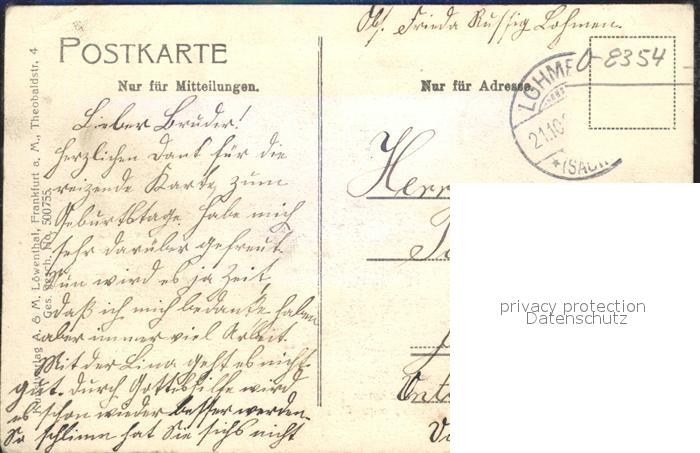 Abs. Frieda Russig Lohmen.
POSTKARTE
0-8354
Nur für Mitteilungen.
Nur für Adresse.
LOHME
21.10
* (SAC
Lieber Bruder!
Herzlichen Dank für die
reizende Karte zum
Geburtstage. Habe mich
sehr darüber gefreut.
Nun wird es ja Zeit,
daß ich mich bedanke, haben
aber immer viel Arbeit.
Mit der Lina geht es nicht
gut. Durch Gotteshilfe wird
es schon wieder besser werden.
So schlimm hat Sie sichs nicht
Herr
A. & M. Löwenthal, Frankfurt a. M., Theobaldstr. 4
Ges. Gesch. No. 500755.
privacy protection
Datenschutz